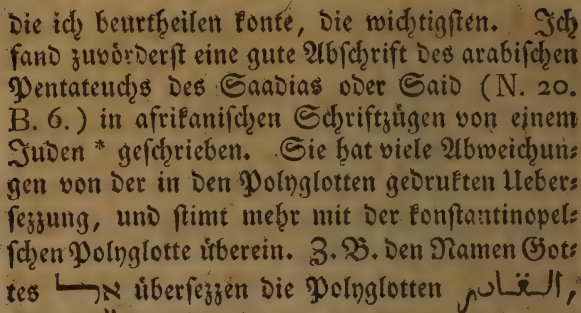 die ich beurtheilen konte, die wichtigsten. Ich
fand zuvörderst eine gute Abschrift des arabischen
Pentateuchs des Saadias oder Said (N. 20.
B. 6.) in afrikanischen Schriftzügen von einem
Juden * geschrieben. Sie hat viele Abweichun⸗
gen von der in den Polyglotten gedrukten Ueber⸗
sezzung, und stimt mehr mit der konstantinopel⸗
schen Polyglotte überein. Z. B. den Namen Got⸗
tes übersezzen die Polyglotten القادر,